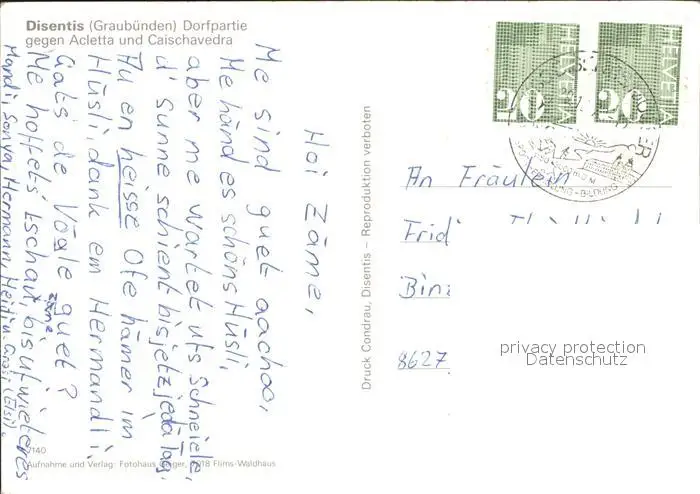 Disentis (Graubünden) Dorfpartie
gegen Acletta und Caischavedra
Hoi Zäme,
Me sind guet aachoo,
Me händ es schöns Hüsli,
aber me wartet ufs Schneiele,
d' sunne schient bis jetz jedä Tag.
Au en heisse Ofe hämer im
Hüsli, dank em Hermandli!
Gats de Vögle guet?
Me hoffets! Tschau zäme, bis uf wieteres
Mandi, Sonya, Hermann, Heidi u. Grosi (Elsi).
7140
Aufnahme und Verlag: Fotohaus Geiger, 7018 Flims-Waldhaus
Druck Condrau, Disentis – Reproduktion verboten
HELVETIA
20
HELVETIA
20
BILDUNG
An Fräulein
Frid
8627
privacy protection
Datenschutz